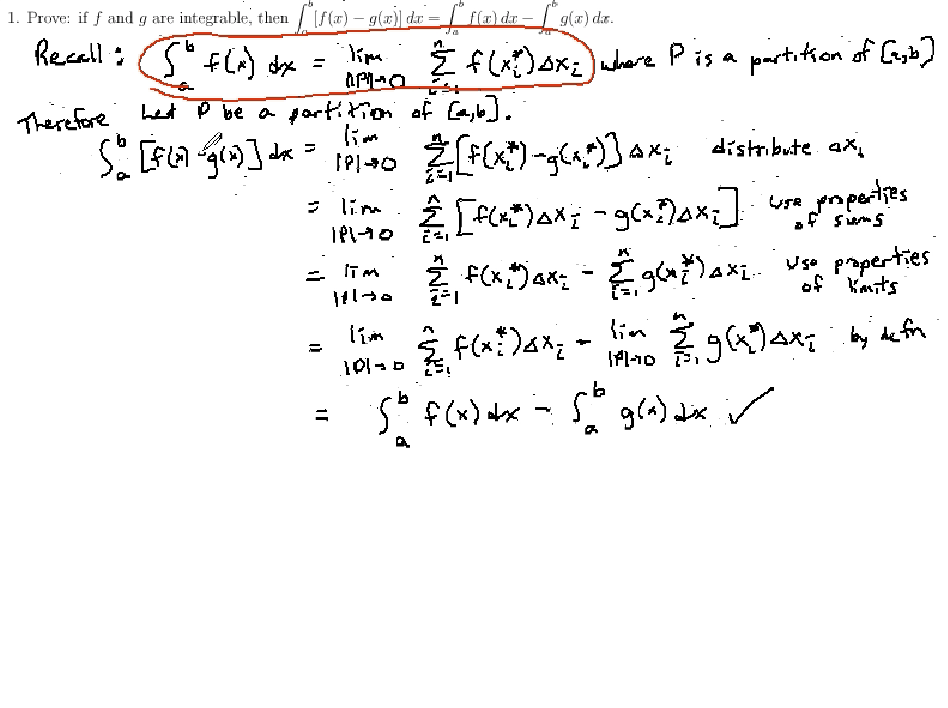 1. Prove: if f and g are integrable, then ∫_a^b [f(x) − g(x)] dx = ∫_a^b f(x) dx − ∫_a^b g(x) dx.
Recall: ∫_a^b f(x) dx = lim_{|P|→0} Σ_{i=1}^n f(x_i*)Δx_i where P is a partition of [a,b]
Therefore Let P be a partition of [a,b].
∫_a^b [f(x) − g(x)] dx = lim_{|P|→0} Σ_{i=1}^n [f(x_i*) − g(x_i*)] Δx_i distribute Δx_i
= lim_{|P|→0} Σ_{i=1}^n [f(x_i*)Δx_i − g(x_i*)Δx_i] use properties of sums
= lim_{|P|→0} Σ_{i=1}^n f(x_i*)Δx_i − Σ_{i=1}^n g(x_i*)Δx_i use properties of limits
= lim_{|P|→0} Σ_{i=1}^n f(x_i*)Δx_i − lim_{|P|→0} Σ_{i=1}^n g(x_i*)Δx_i by defn
= ∫_a^b f(x) dx − ∫_a^b g(x) dx ✓